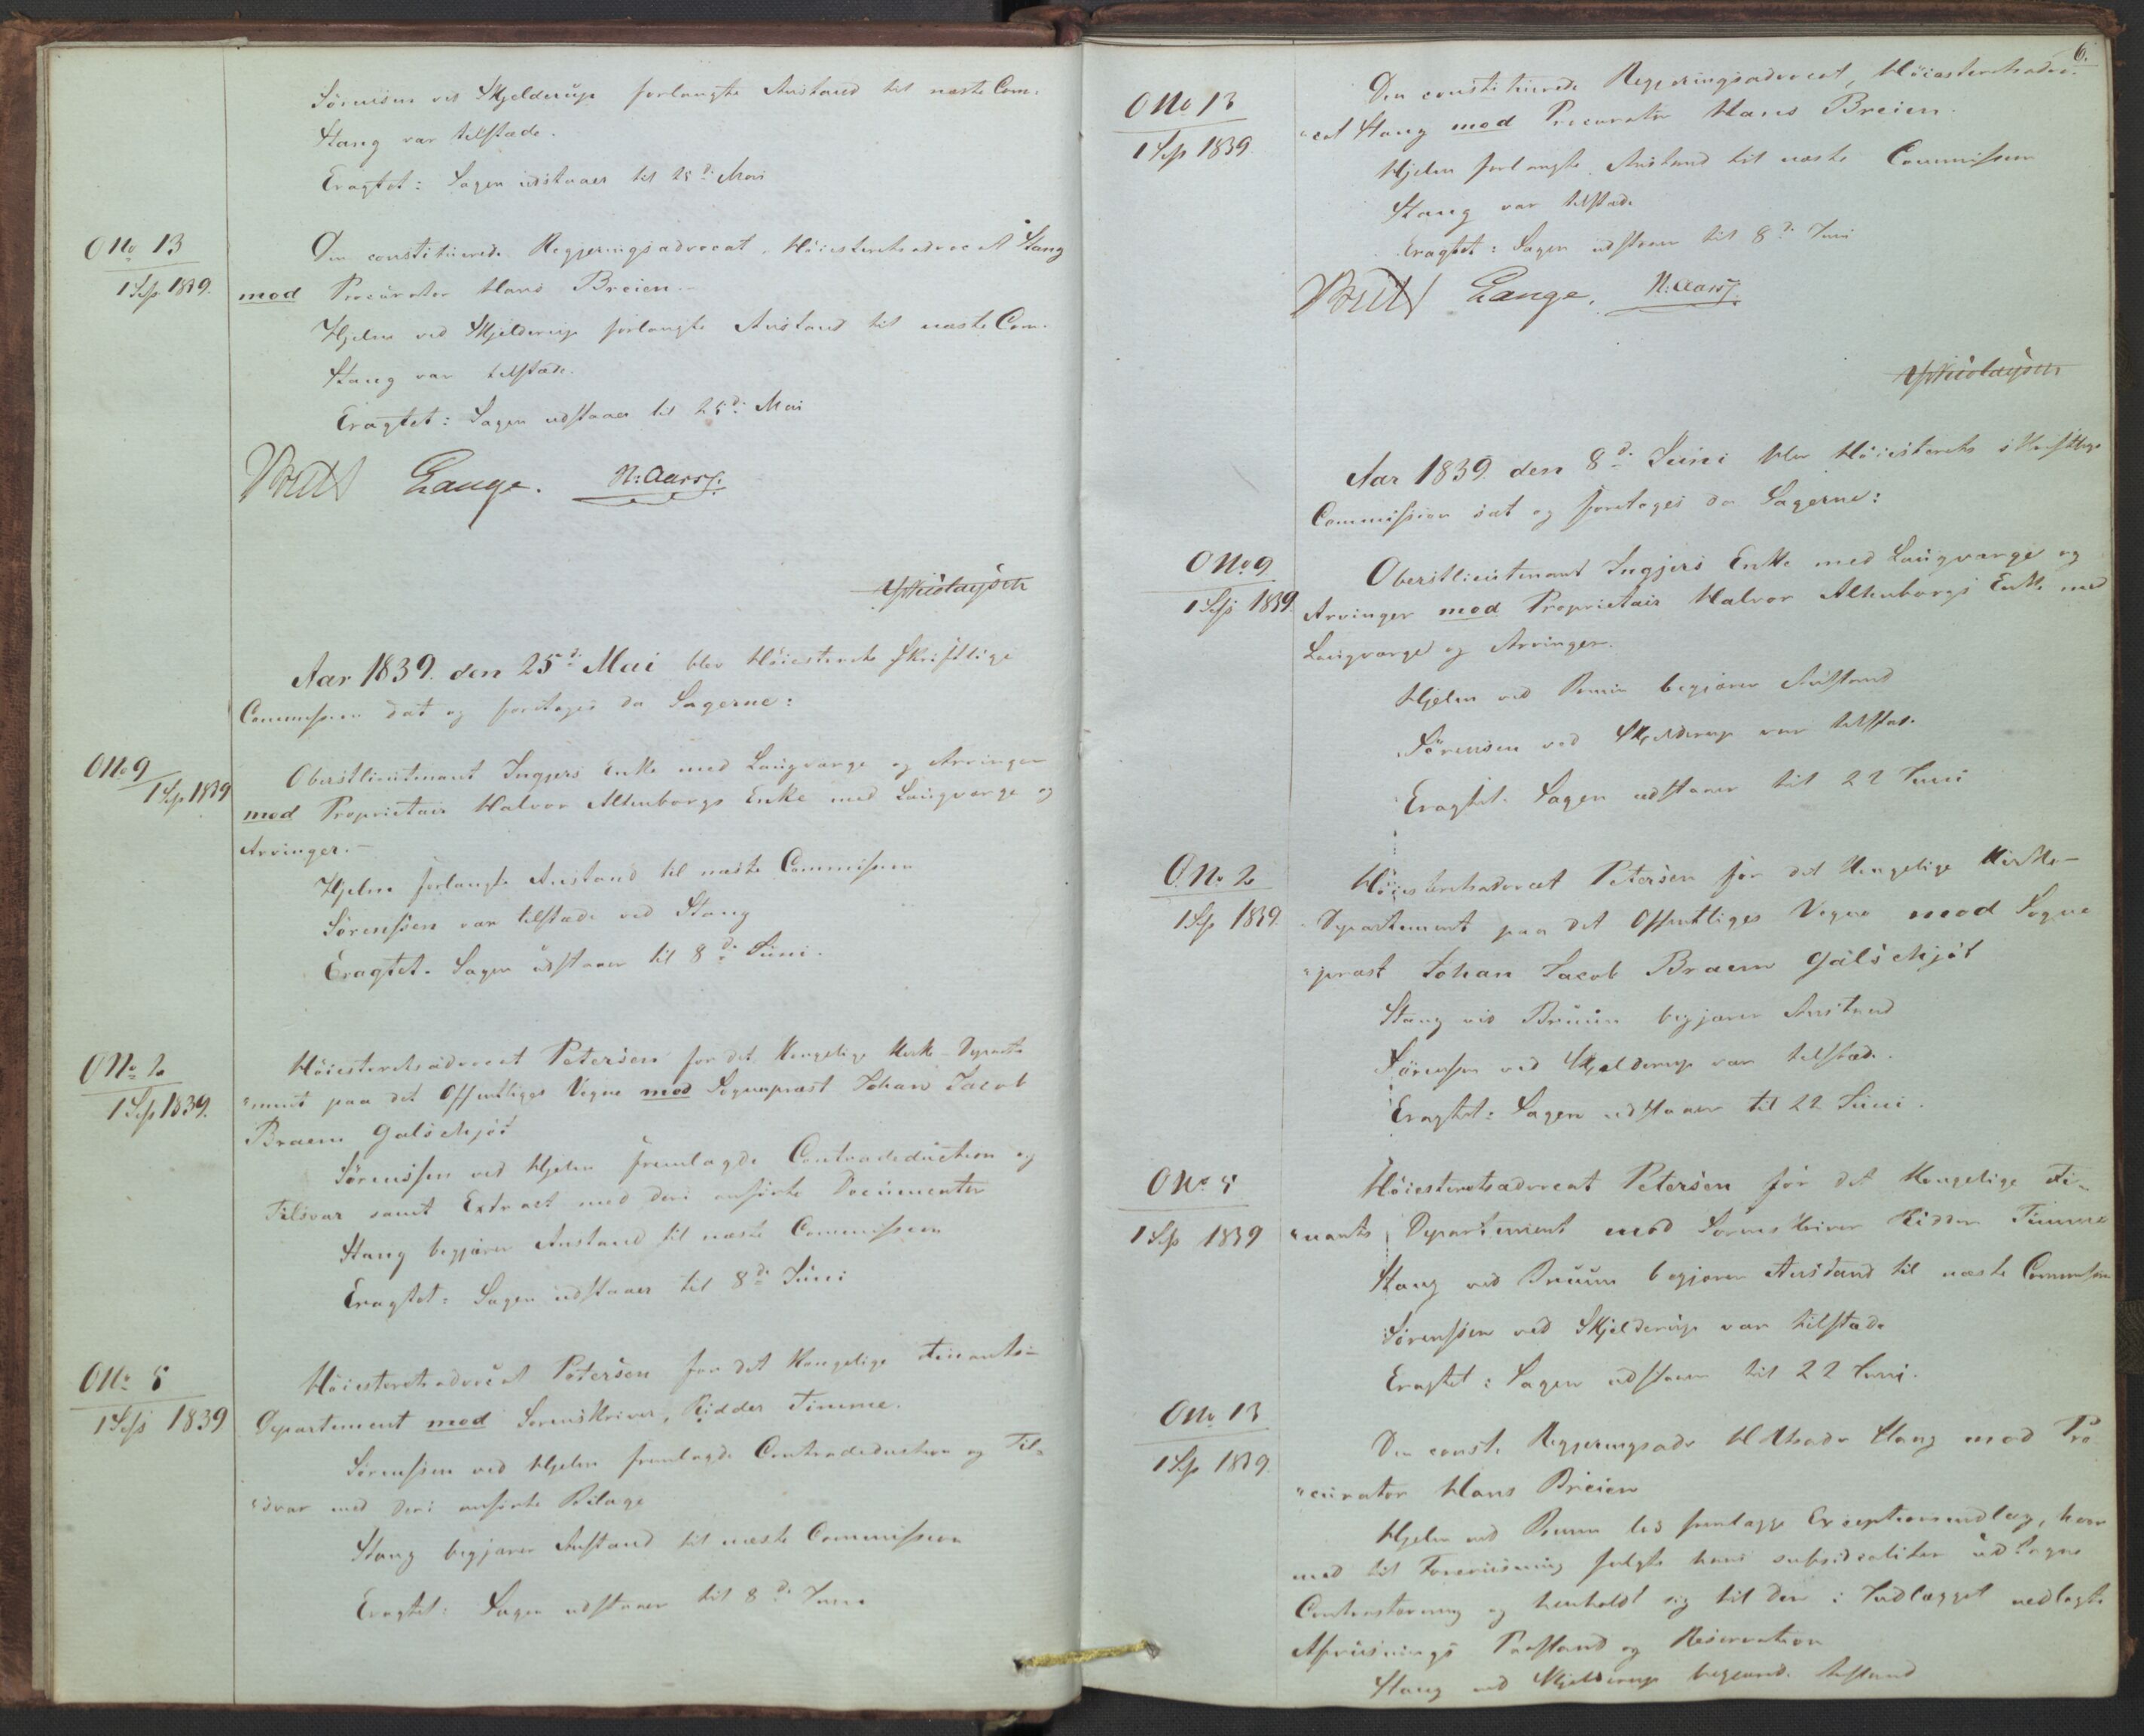 Sörensen ved Skjelderup forlangte Anstand til næste Com.
Stang var tilstæde.
Eragtet: Sagen udstaaer til 25d: Mai
O No 13
1 Sess 1839.
Den constituerede Regjeringsadvocat, Höiesteretsadvocat Stang
mod Procurator Hans Breien.
Hjelm ved Skjelderup forlangte Anstand til næste Com.
Stang var tilstæde.
Eragtet: Sagen udstaaer til 25d: Mai
Lange. N: Aars
Aar 1839. den 25d: Mai blev Höiesterets skriftlige
Commission sat og foretoges da Sagerne:
O No 9
1 Sess 1839
Oberstlieutenant Ingjers Enke med Laugværge og Arvinger
mod Proprietair Halvor Altenborgs Enke med Laugværge og
Arvinger.
Hjelm forlangte Anstand til næste Commission
Sörenssen var tilstæde ved Stang
Eragtet. Sagen udstaaer til 8d: Juni.
O No 2
1 Sess 1839.
Höiesteretsadvocat Petersen for det Kongelige Kirke-Departe
"ment paa det Offentliges Vegne mod Sognepræst Johan Jacob
Braem Galschjöt
Sörenssen ved Hjelm fremlagde Contradeduction og
Tilsvar samt Extract med deri anförte Documenter
Stang begjærer Anstand til næste Commission
Eragtet: Sagen udstaaer til 8d: Juni
O No 5
1 Sess 1839
Höiesteretsadvocat Petersen for det Kongelige Finants-
Departement mod Sorenskriver, Ridder Timme.
Sörenssen ved Hjelm fremlagde Contradeduction og Til=
"svar med deri anförte Bilage
Stang begjærer Anstand til næste Commission
Eragtet: Sagen udstaaer til 8d: Juni
6.
O No 13
1 Sess 1839.
Den constituerede Regjeringsadvocat, Höiesteretsadvo-
"cat Stang mod Procurator Hans Breien.
Hjelm forlangte Anstand til næste Commission
Stang var tilstæde
Eragtet: Sagen udstaaer til 8d: Juni
Lange. N: Aars
Aar 1839. den 8d: Juni blev Höiesterets skriftlige
Commission sat og foretoges da Sagerne:
O No 9
1 Sess 1839.
Oberstlieutenant Ingjers Enke med Laugværge og
Arvinger mod Proprietair Halvor Altenborgs Enke med
Laugværge og Arvinger.
Hjelm ved Bruun begjærer Anstand
Sörensen ved Skjelderup var tilstæd.
Eragtet. Sagen udstaaer til 22 Juni
O. No. 2
1 Sess 1839.
Höiesteretsadvocat Petersen for det Kongelige Kirke-
Departement paa det Offentliges Vegne mod Sogne
"præst Johan Jacob Braem Galschjöt
Stang ved Bruun begjærer Anstand
Sörenssen ved Skjelderup var tilstæde.
Eragtet: Sagen udstaaer til 22 Juni.
O No 5
1 Sess 1839
Höiesteretsadvocat Petersen for det Kongelige Fi-
"nants Departement mod Sorenskriver Ridder Timme
Stang ved Bruun begjærer Anstand til næste Commission
Sörenssen ved Skjelderup var tilstæde
Eragtet: Sagen udstaaer til 22 Juni.
O No 13
1 Sess 1839.
Den const. Regjeringsadv Stang mod Pro
"curator Hans Breien
Hjelm ved Bruun lod fremlægge Exceptionsindlæg, hvor
med til Foreviisning fulgte hans subsidialiter udtagne
Contrastævning og henholdt sig til den i Indlægget nedlagte
Afviisnings Paastand og Reservation
Stang ved Skjelderup begjærede Anstand